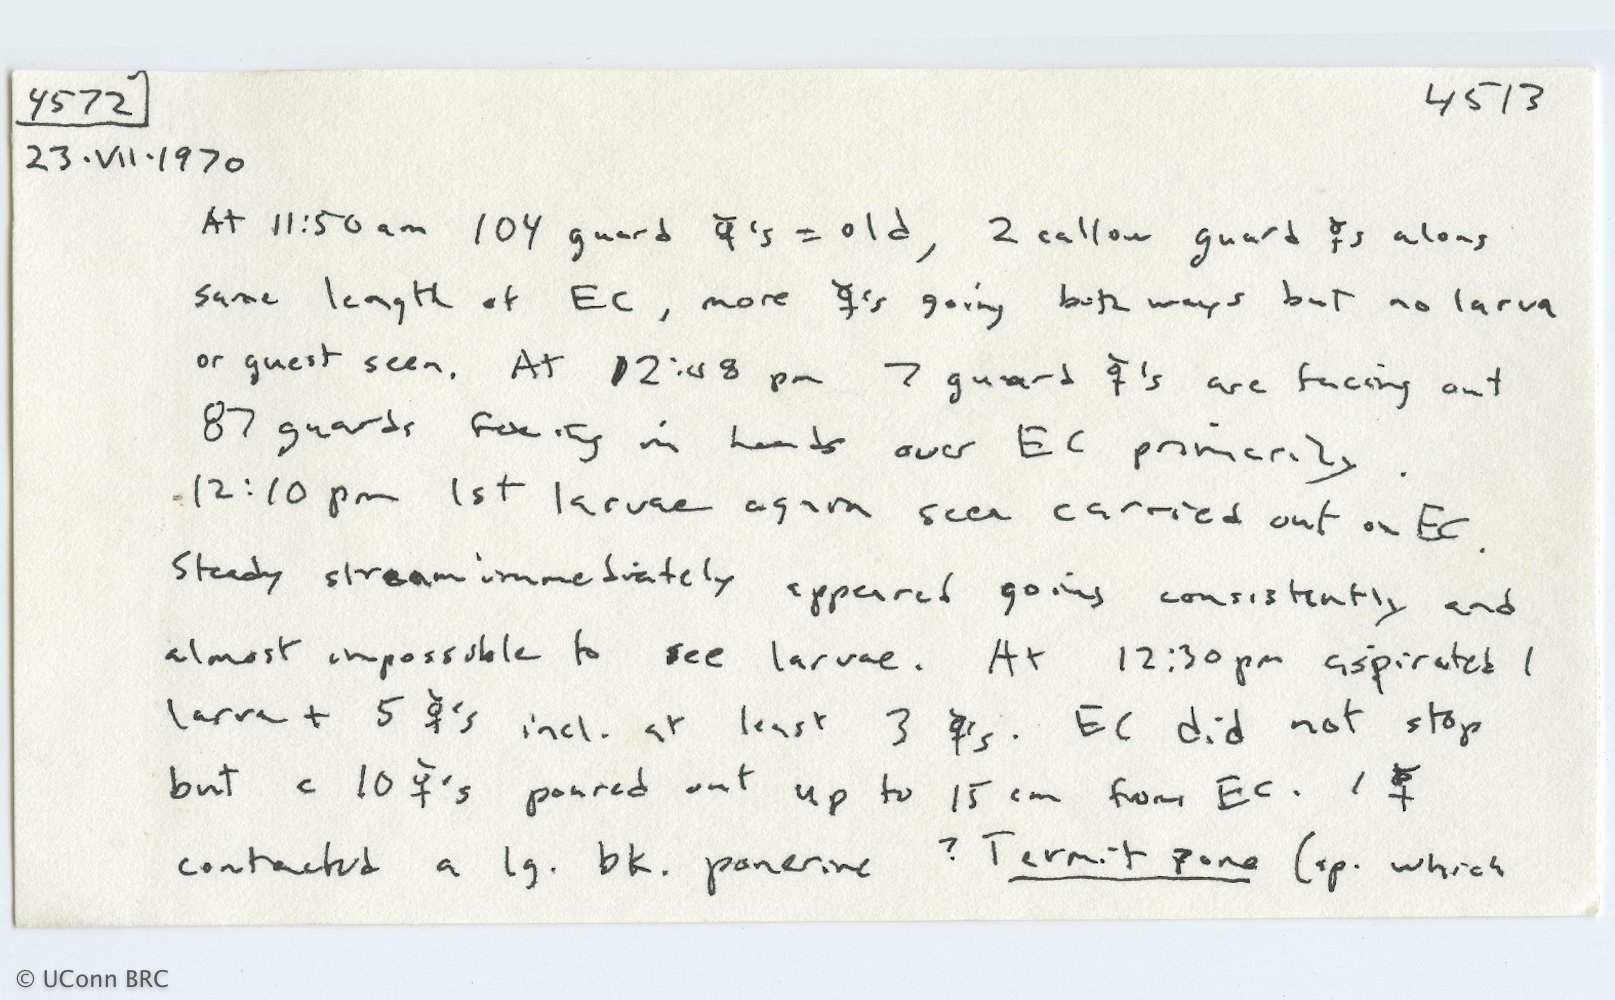 4572
4513
23·VII·1970
At 11:50 am 104 guard ☿'s = old, 2 callow guard ☿s along
same length of EC, more ☿'s going both ways but no larva
or guest seen. At 12:08 pm 7 guard ☿'s are facing out
87 guards facing in heads over EC primarily.
12:10 pm 1st larvae again seen carried out on EC.
Steady stream immediately appeared going consistently and
almost impossible to see larvae. At 12:30 pm aspirated 1
larva + 5 ☿'s incl. at least 3 ☿'s. EC did not stop
but c 10 ☿'s poured out up to 15 cm from EC. 1 ☿
contacted a lg. bk. ponerine ? Termitopone (sp. which
© UConn BRC